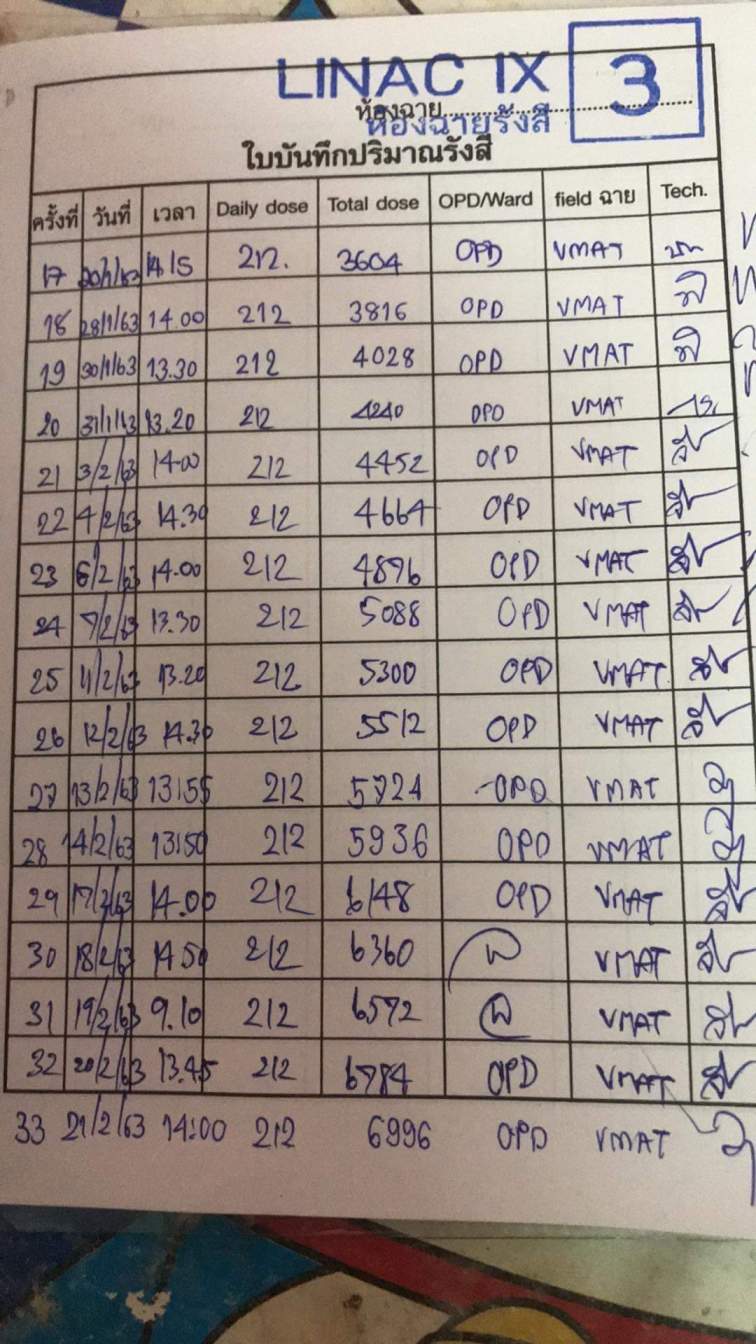 LINAC IX 3
ห้องฉาย
ห้องฉายรังสี
ใบบันทึกปริมาณรังสี
ครั้งที่ วันที่ เวลา Daily dose Total dose OPD/Ward field ฉาย Tech.
17 14.15 212. 3604 OPD VMAT
18 28/1/63 14.00 212 3816 OPD VMAT
19 30/1/63 13.30 212 4028 OPD VMAT
20 31/1/63 13.20 212 4240 OPD VMAT
21 3/2/63 14.00 212 4452 OPD VMAT
22 4/2/63 14.30 212 4664 OPD VMAT
23 6/2/63 14.00 212 4896 OPD VMAT
24 7/2/63 13.30 212 5088 OPD VMAT
25 11/2/63 13.20 212 5300 OPD VMAT
26 12/2/63 14.30 212 5512 OPD VMAT
27 13/2/63 13:55 212 5724 OPD VMAT
28 14/2/63 13:50 212 5936 OPD VMAT
29 17/2/63 14.00 212 6148 OPD VMAT
30 18/2/63 14.50 212 6360 VMAT
31 19/2/63 9.10 212 6572 VMAT
32 20/2/63 13.45 212 6784 OPD VMAT
33 21/2/63 14:00 212 6996 OPD VMAT